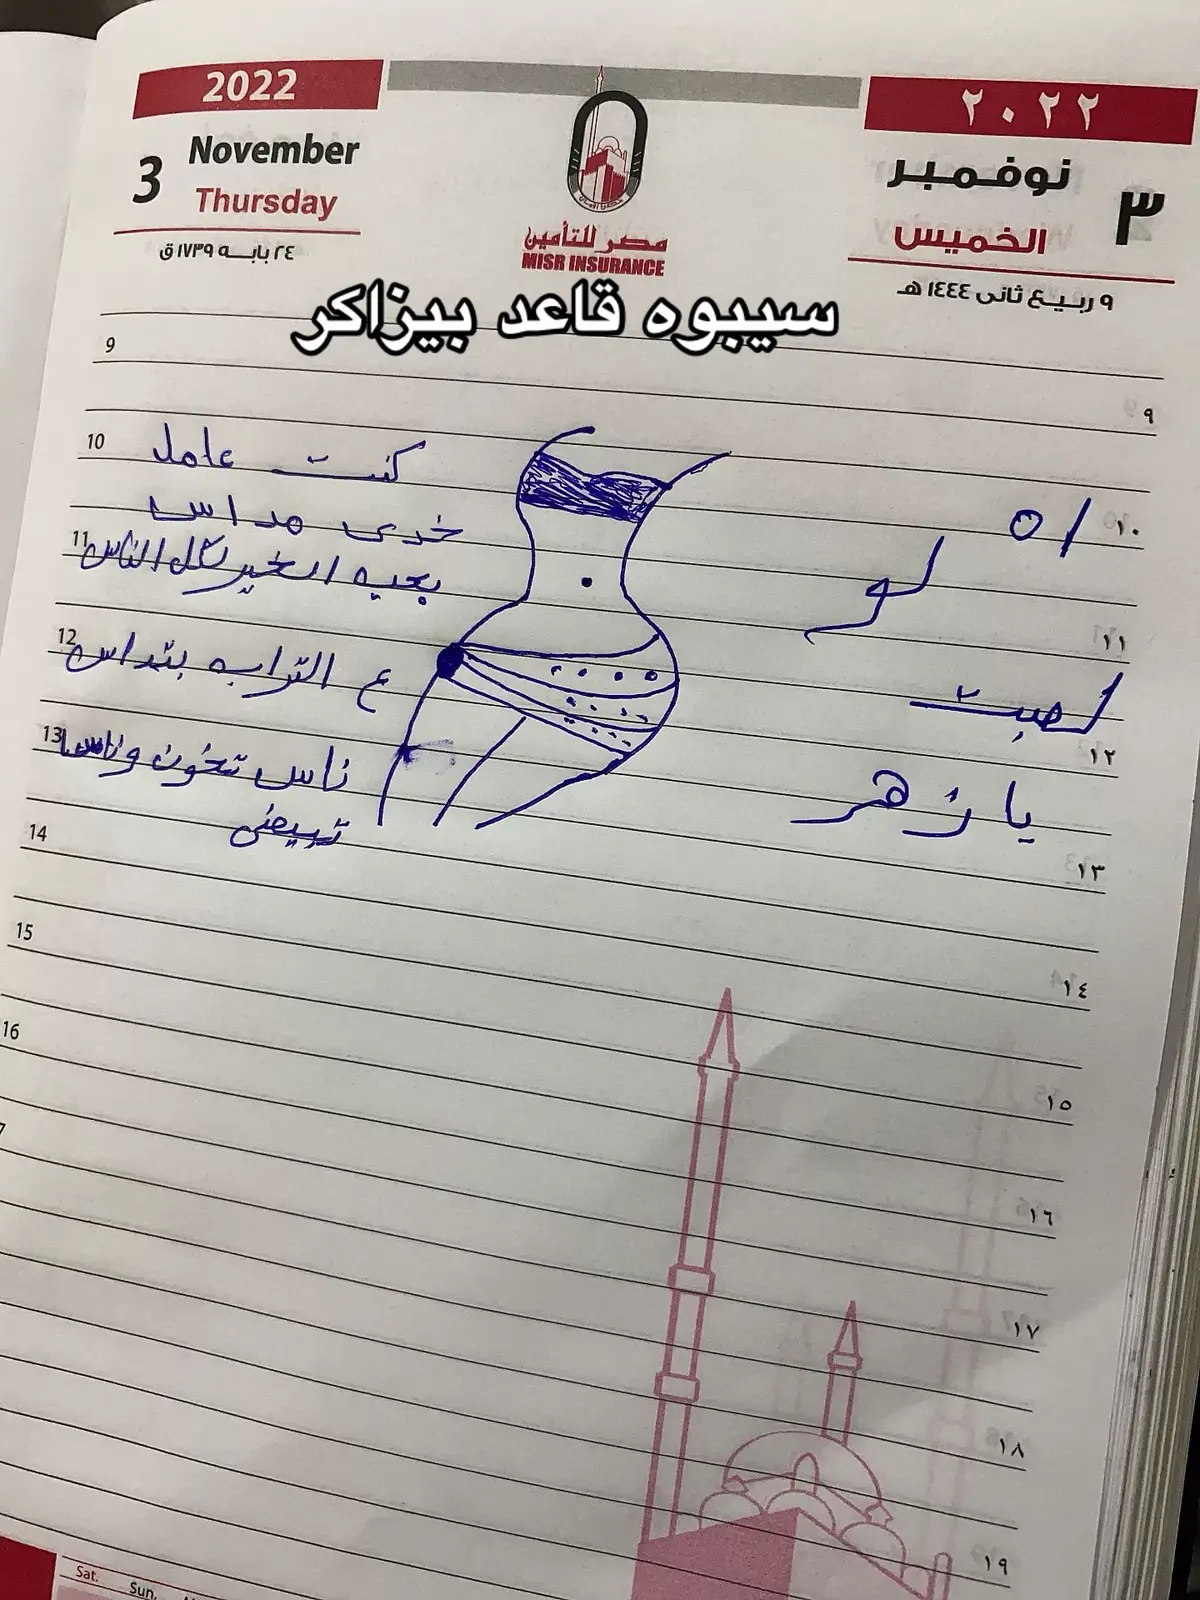 2022
3 November
Thursday
٢٤ بابه ١٧٣٩ ق
مصر للتأمين
MISR INSURANCE
٢٠٢٢
٣ نوفمبر
الخميس
٩ ربيع ثانى ١٤٤٤ هـ
سيبوه قاعد بيزاكر
9 ٩
10 ١٠
11 ١١
12 ١٢
13 ١٣
14 ١٤
15 ١٥
16 ١٦
7 ١٧
١٨
١٩
كنت عامل
خدى مداس
بعيه الخير لكل الناس
ع التراب بتداس
ناس تخون وناس
اه
لو
لعبت
يا زهر
Sat. Sun.